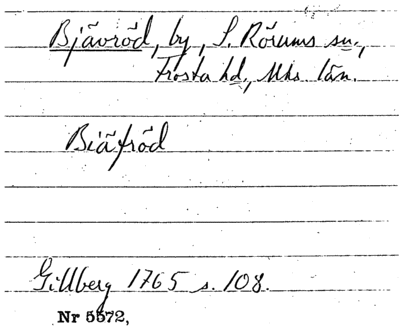 Bjävröd, by, S. Rörums sn.,
Frosta hd., Mhs. län.
Biäfröd
Gillberg 1765 s. 108.
Nr 5572,